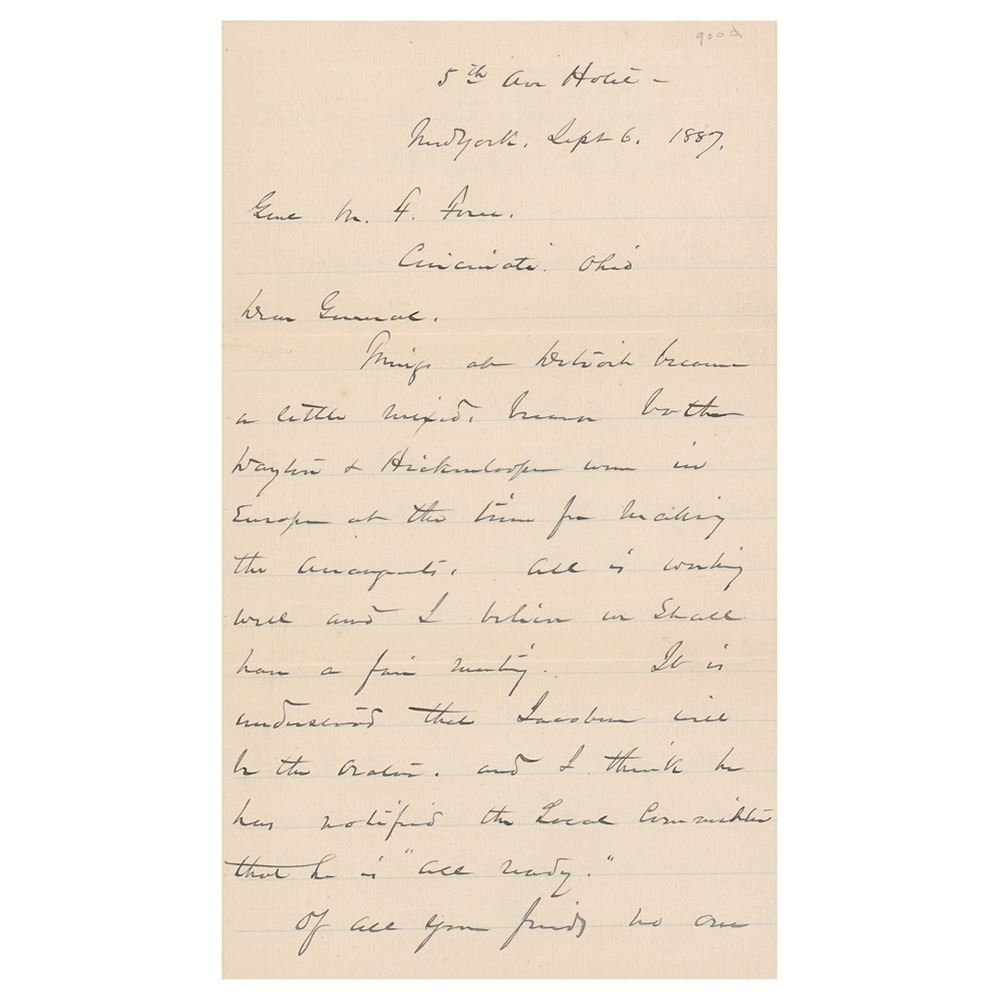 good
5th Ave Hotel —
New York, Sept 6. 1887.
Genl M. F. Force.
Cincinnati. Ohio
Dear General.
Things at Detroit became
a little mixed, because both
Dayton & Hickenlooper were in
Europe at the time for making
the arrangements. All is working
well and I believe we shall
have a fair meeting. It is
understood that Jacobson will
be the Orator. and I think he
has notified the Local Committee
that he is "all ready."
Of all your friends no one